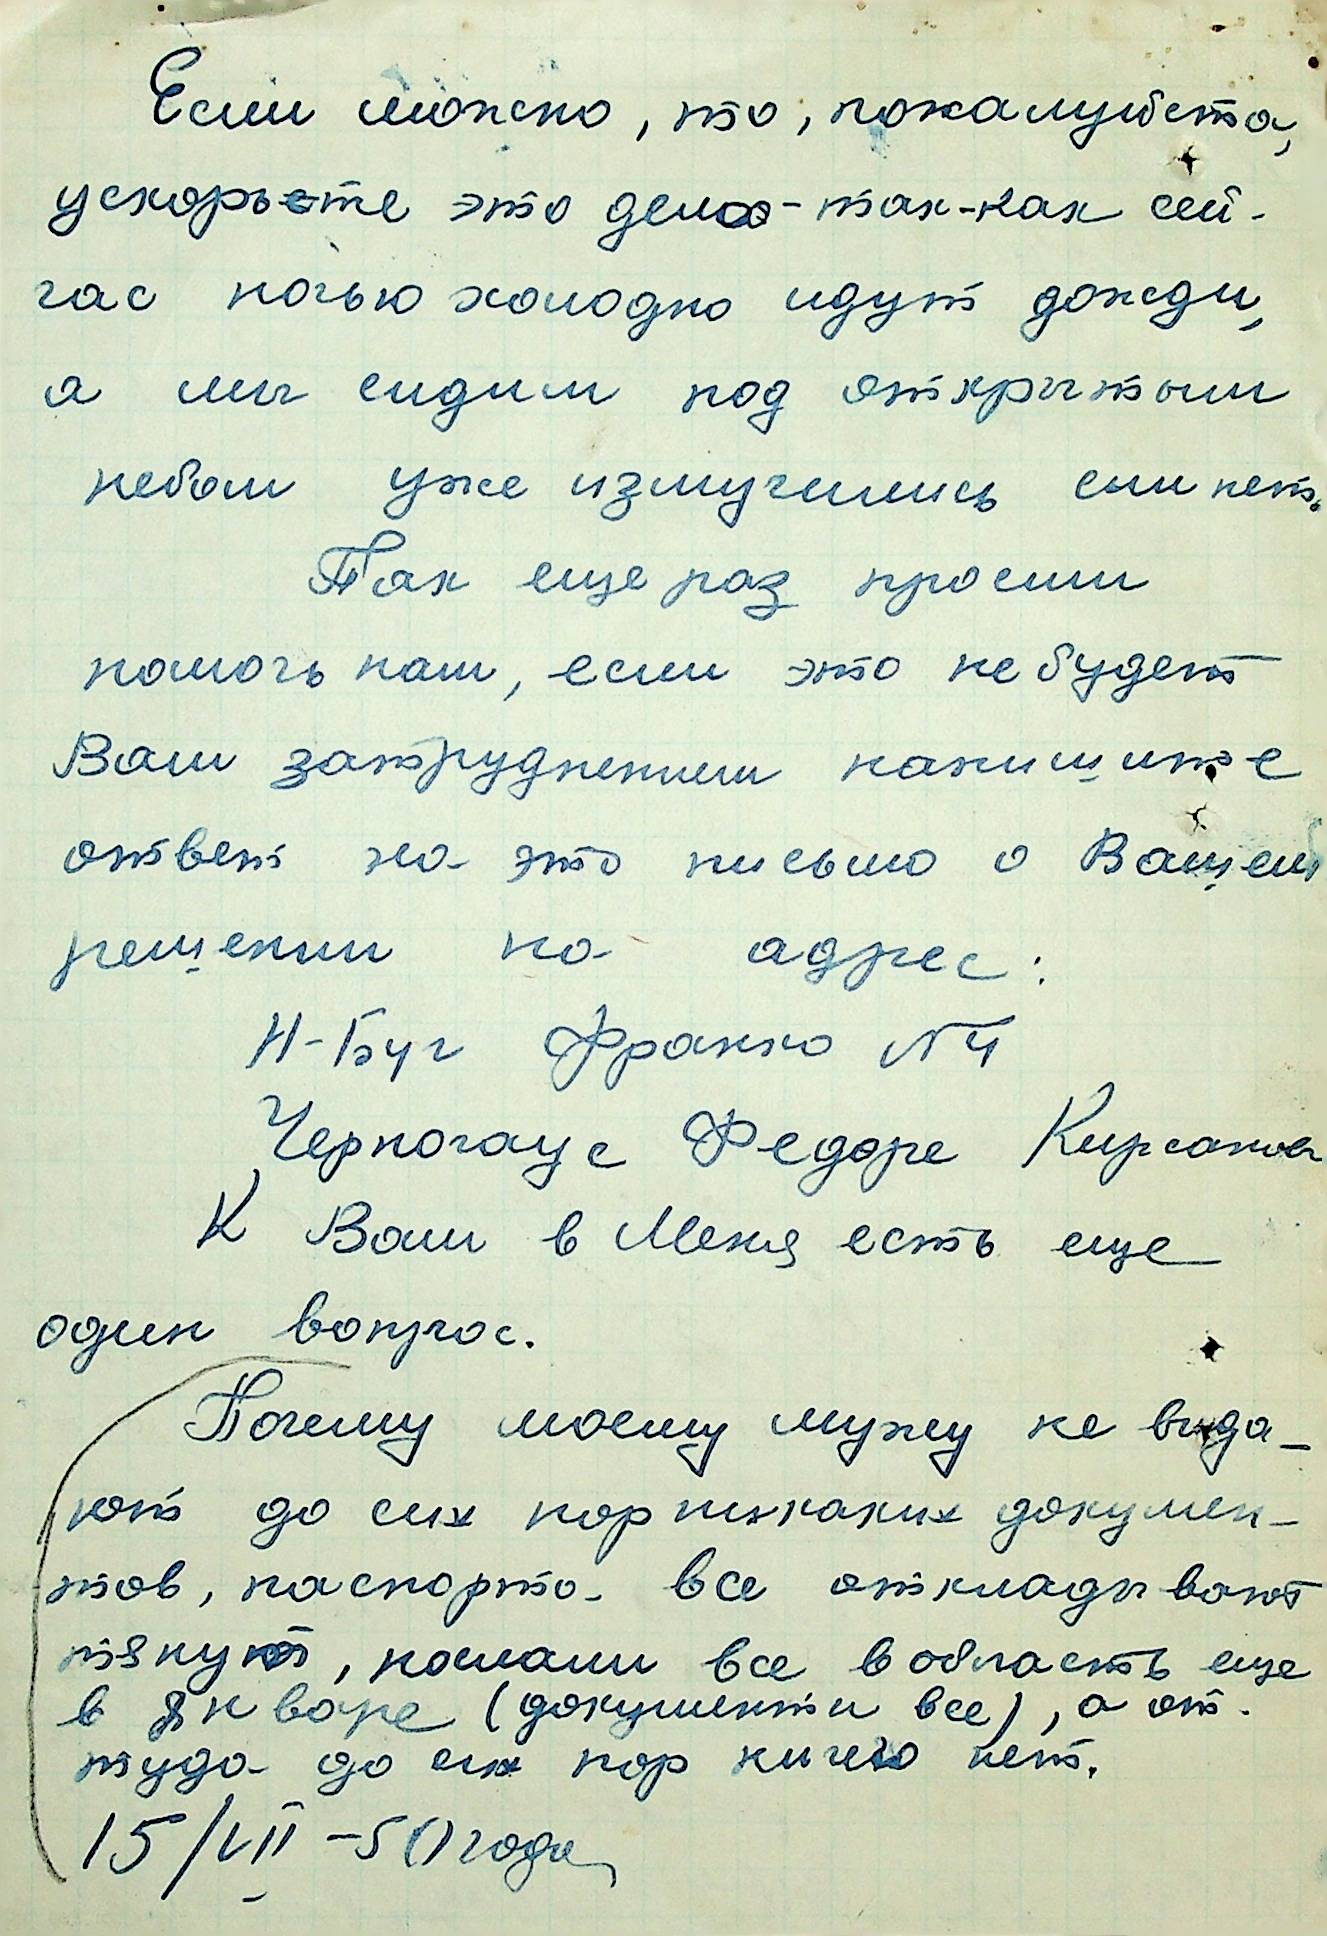 Если можно, то, пожалуйста,
ускорьте это дело - так-как сей-
час ночью холодно идут дожди,
а мы сидим под открытым
небом уже измучились сил нет.
Так еще раз просим
помочь нам, если это не будет
Вам затруднением напишите
ответ на это письмо о Вашей
решении на адрес:
Н-Буг Франко №4
Черногаус Федоре Кирсановн
К Вам в Меня есть еще
один вопрос.
Почему моему мужу не выда-
ют до сих пор никаких докумен-
тов, паспорта. все откладывают
тянут, послали все в область еще
в январе (документы все), а от-
туда до сих пор ничего нет.
15/VII -50 года